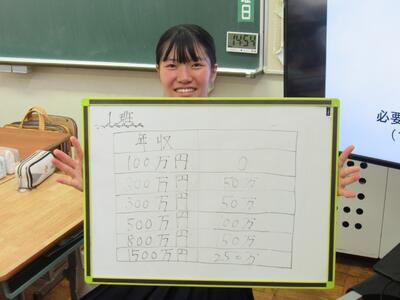 曜日
14:54
1班
年収
100万円 0
200万円 50万
300万円 50万
500万円 100万
800万円 150万
1500万円 250万
必要